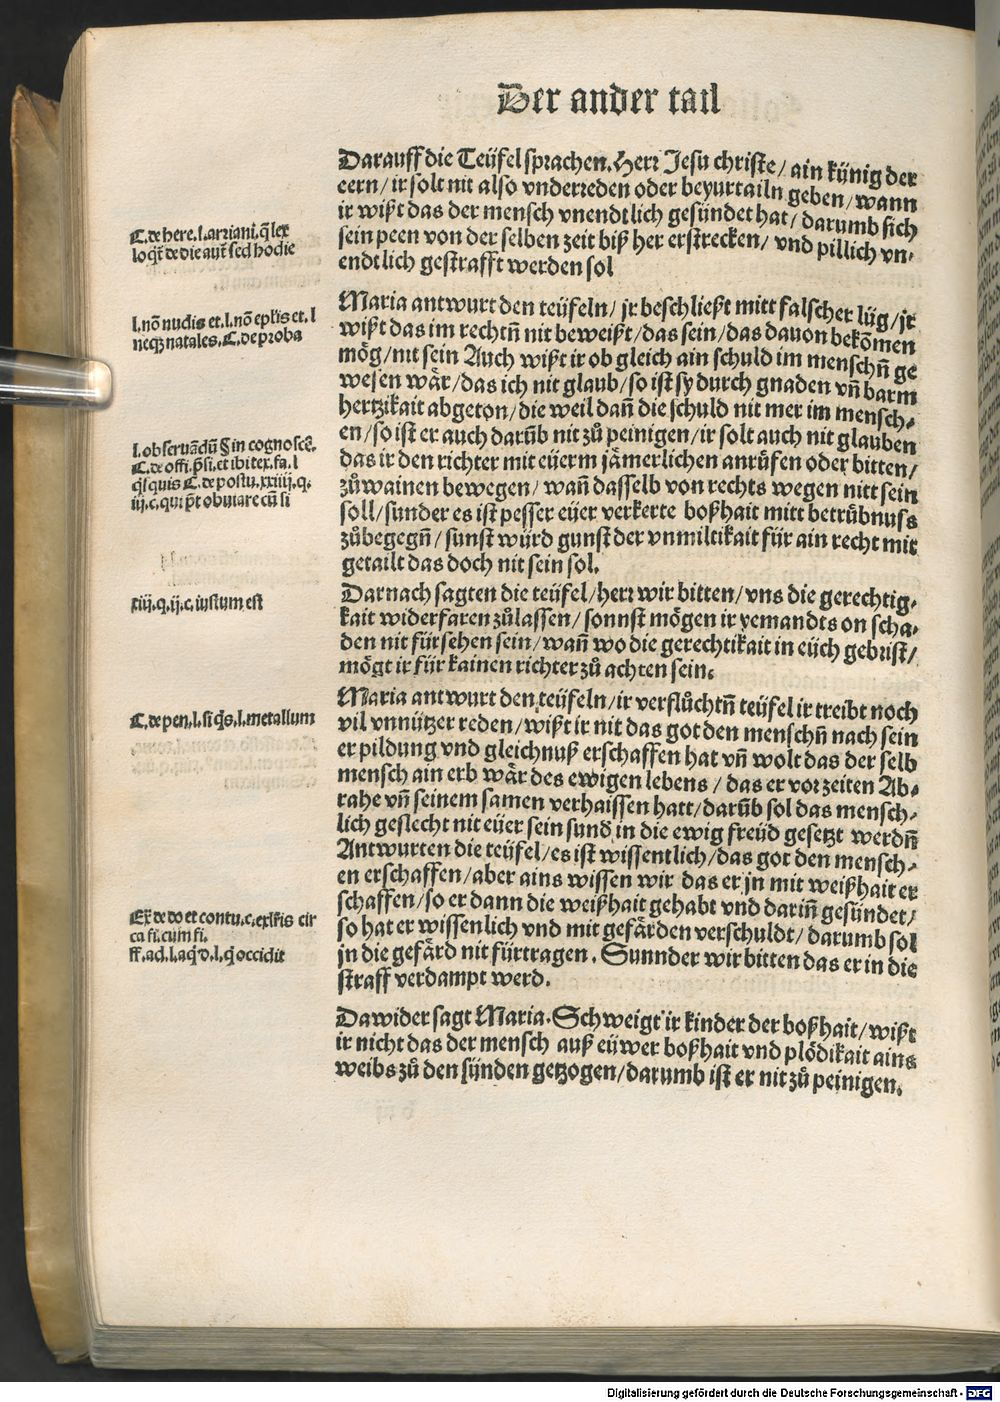 Der ander tail
Darauff die Teüfel sprachen. Herr Jesu christe / ain künig der
eern / ir solt nit also vnderreden oder beyurtailn geben / wann
ir wißt das der mensch vnendtlich gesündet hat / darumb sich
sein peen von der selben zeit biß her erstrecken / vnd pillich vn⸗
endtlich gestrafft werden sol
C. de here. l. arriani. q̄ lex
loqr̄ de die aut̄ sed hodie
Maria antwurt den teüfeln / jr beschließt mitt falscher lüg / jr
wißt das im rechtn̄ nit beweißt / das sein / das dauon bekōmen
mög / nit sein Auch wißt ir ob gleich ain schuld im menschn̄ ge
wesen wär / das ich nit glaub / so ist sy durch gnaden vn̄ barm
hertzikait abgeton / die weil dan̄ die schuld nit mer im mensch⸗
en / so ist er auch darūb nit zů peinigen / ir solt auch nit glauben
das ir den richter mit eüerm jämerlichen anrůfen oder bitten /
zůwainen bewegen / wan̄ dasselb von rechts wegen nitt sein
soll / sunder es ist pesser eüer verkerte boßhait mitt betrůbnuss
zůbegegn̄ / sunst würd gunst der vnmiltikait für ain recht mit
getailt das doch nit sein sol.
l. nō nudis et. l. nō epl̄is et. l
neqz natales. C. de proba
l. obseruādū § in cognoscē.
C. de offi. p̄si. et ibi tex. fa. l
q̄squis C. de postu. xxiiij. q.
iij. c. qui p̄t obuiare cū si
Darnach sagten die teüfel / herr wir bitten / vns die gerechtig⸗
kait widerfaren zůlassen / sonnst mögen ir yemandts on scha⸗
den nit fürsehen sein / wan̄ wo die gerechtikait in eüch gebrist /
mögt ir für kainen richter zů achten sein.
xiij. q. ij. c. iustum est
Maria antwurt den teüfeln / ir verflůchtn̄ teüfel ir treibt noch
vil vnnützer reden / wißt ir nit das got den menschn̄ nach sein
er pildung vnd gleichnuß erschaffen hat vn̄ wolt das der selb
mensch ain erb wär des ewigen lebens / das er vorzeiten Ab⸗
rahe vn̄ seinem samen verhaissen hatt / darūb sol das mensch⸗
lich geslecht nit eüer sein sund in die ewig freüd gesetzt werdn̄
Antwurten die teüfel / es ist wissentlich / das got den mensch⸗
en erschaffen / aber ains wissen wir das er jn mit weißhait er
schaffen / so er dann die weißhait gehabt vnd darin̄ gesündet /
so hat er wissenlich vnd mit gefärden verschuldt / darumb sol
jn die gefärd nit fürtragen. Sunnder wir bitten das er in die
straff verdampt werd.
C. de pen. l. si q̄s. l. metallum
Ex̄ de do et contu. c. exl̄ris cir
ca fi. cum fi.
ff. ad. l. aq̄. l. q̄ occidit
Dawider sagt Maria. Schweigt ir kinder der boßhait / wißt
ir nicht das der mensch auß eüwer boßhait vnd plödikait ains
weibs zů den sünden getzogen / darumb ist er nit zů peinigen.
Digitalisierung gefördert durch die Deutsche Forschungsgemeinschaft - DFG